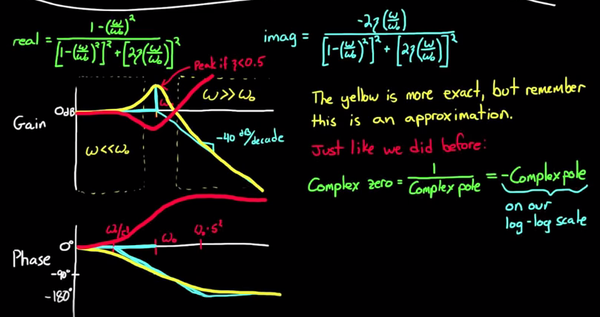 real = 1-(ω/ω₀)² / [1-(ω/ω₀)²]²+[2ʒ(ω/ω₀)]²
imag = -2ʒ(ω/ω₀) / [1-(ω/ω₀)²]²+[2ʒ(ω/ω₀)]²
Peak if ʒ<0.5
ω>>ω₀
0dB
Gain
-40 dB/decade
ω<<ω₀
The yellow is more exact, but remember
this is an approximation.
Just like we did before:
Complex zero = 1 / Complex pole = -Complex pole
on our
log-log scale
0°
ω₀
Phase
-90°
-180°